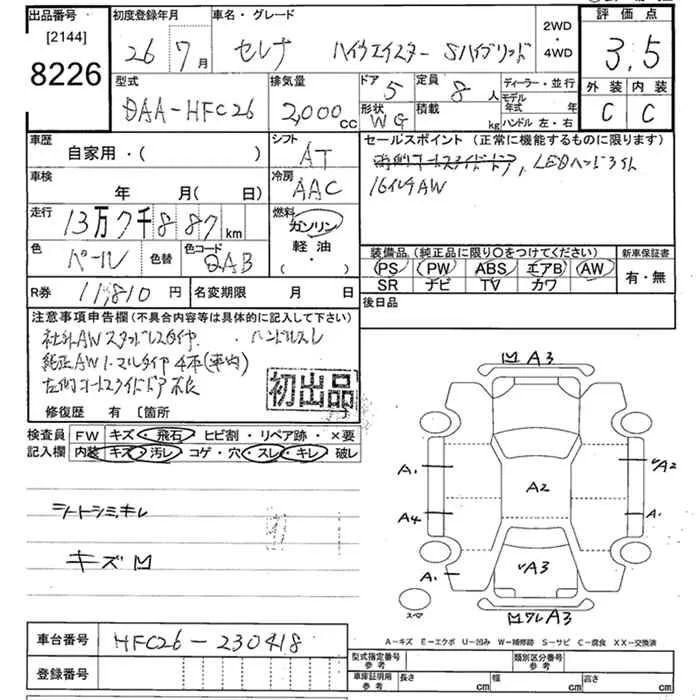 出品番号 初度登録年月 車名・グレード 2WD・4WD 評価点
[2144]
8226
26 7月 セレナ ハイウェイスター Sハイブリッド 3.5
型式 排気量 ドア 定員 ディーラー・並行 外装 内装
DAA-HFC26 2,000cc 5 8人 モデル年式 年 C C
形状 積載 ハンドル 左・右
WG kg
車歴 シフト セールスポイント (正常に機能するものに限ります)
自家用・( ) AT 両側オートスライドドア, LEDヘッドライト
車検 冷房 16インチAW
年 月(日) AAC
走行 燃料
13万7千887km ガソリン
軽油
・( )
色 色替 色コード 装備品(純正品に限り○をつけてください) 新車保証書
パール QAB PS PW ABS エアB AW 有・無
SR ナビ TV カワ
R券 11,810円 名変期限 月 日 後日品
注意事項申告欄(不具合内容等は具体的に記入して下さい)
社外AWスタッドレスタイヤ ・ハンドルスレ
純正AWノーマルタイヤ4本(車内)
左側オートスライドドア不良
初出品
修復歴 有 〔箇所 〕
検査員 FW キズ・飛石・ヒビ割・リペア跡・×要
記入欄 内装 キズ・汚レ・コゲ・穴・スレ・キレ・破レ
シートシミキレ
キズM
M A3
A1 A2 UA2
A4 A1
A1 UA3
スペア M ワレ A3
車台番号 HFC26-230418
登録番号
A-キズ E-エクボ U-凹み W-補修跡 S-サビ C-腐食 XX-交換済
型式指定番号 参考 類別区分番号 参考
車庫証明用 参考 長さ cm 幅 cm 高さ cm